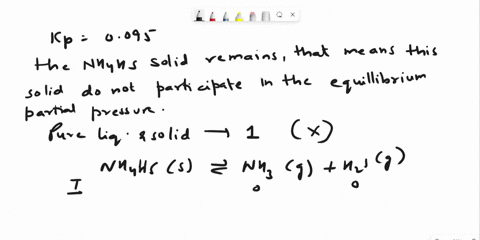 Kp = 0.095
the NH4HS solid remains, that means this
solid do not participate in the equillibrium
partial pressure.
Pure liq. & solid → 1 (x)
NH4HS (s) ⇌ NH3 (g) + H2S (g)
I 0 0